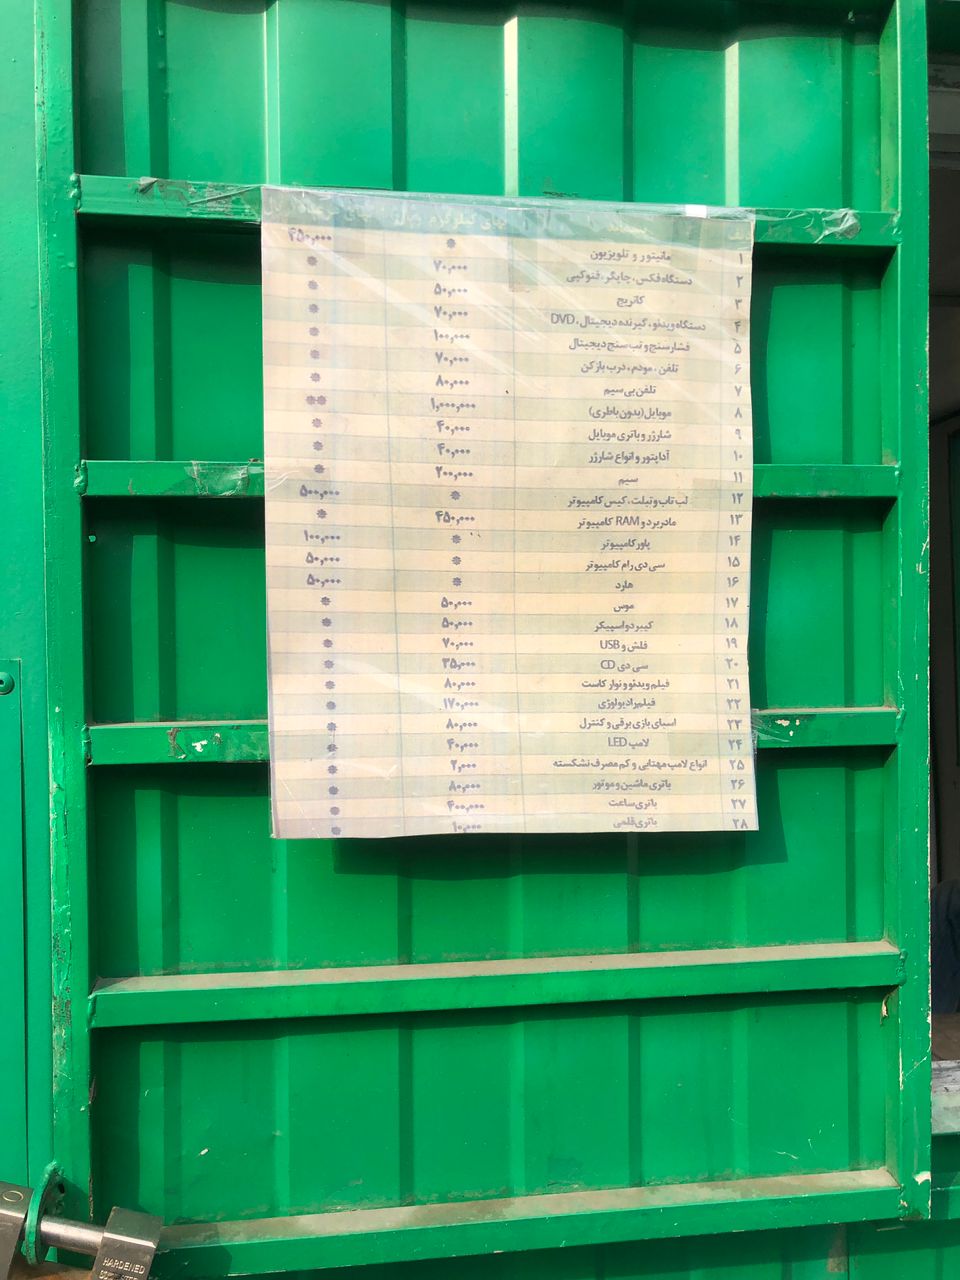 پسماند بهای کیلوگرم ریال بهای
۱ مانیتور و تلویزیون * ۴۵۰,۰۰۰
۲ دستگاه فکس، چاپگر، فتوکپی ۷۰,۰۰۰ *
۳ کاتریج ۵۰,۰۰۰ *
۴ دستگاه ویدئو، گیرنده دیجیتال، DVD ۷۰,۰۰۰ *
۵ فشارسنج و تب سنج دیجیتال ۱۰۰,۰۰۰ *
۶ تلفن، مودم، درب بازکن ۷۰,۰۰۰ *
۷ تلفن بی سیم ۸۰,۰۰۰ *
۸ موبایل (بدون باطری) ۱,۰۰۰,۰۰۰ **
۹ شارژر و باتری موبایل ۴۰,۰۰۰ *
۱۰ آداپتور و انواع شارژر ۴۰,۰۰۰ *
۱۱ سیم ۲۰۰,۰۰۰ *
۱۲ لپ تاپ و تبلت، کیس کامپیوتر * ۵۰۰,۰۰۰
۱۳ مادربرد و RAM کامپیوتر ۴۵۰,۰۰۰ *
۱۴ پاور کامپیوتر * ۱۰۰,۰۰۰
۱۵ سی دی رام کامپیوتر * ۵۰,۰۰۰
۱۶ هارد * ۵۰,۰۰۰
۱۷ موس ۵۰,۰۰۰ *
۱۸ کیبرد و اسپیکر ۵۰,۰۰۰ *
۱۹ فلش و USB ۷۰,۰۰۰ *
۲۰ سی دی CD ۳۵,۰۰۰ *
۲۱ فیلم ویدئو و نوار کاست ۸۰,۰۰۰ *
۲۲ فیلم رادیولوژی ۱۷۰,۰۰۰ *
۲۳ اسبای بازی برقی و کنترل ۸۰,۰۰۰ *
۲۴ لامپ LED ۴۰,۰۰۰ *
۲۵ انواع لامپ مهتابی و کم مصرف نشکسته ۲,۰۰۰ *
۲۶ باتری ماشین و موتور ۸۰,۰۰۰ *
۲۷ باتری ساعت ۴۰۰,۰۰۰ *
۲۸ باتری قلمی ۱۰,۰۰۰ *
HARDENED